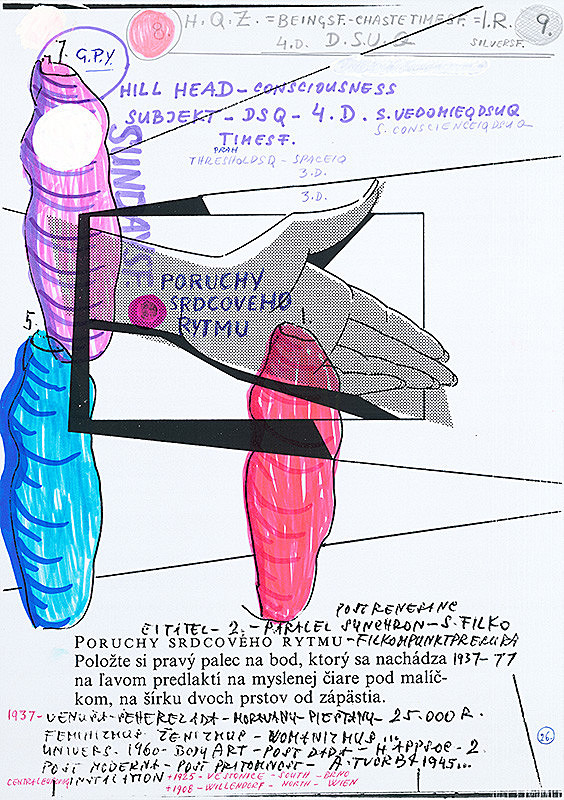 8. H.Q.Z. = BEINGSF.-CHASTETIMESF. = I.R. 9.
4.D. D.S.U.Q SILVERSF.
7. G.P.Y.
HILL HEAD-CONSCIOUSNESS
SUBJEKT-DSQ-4.D. S.VEDOMIEQDSUQ
S.CONSCIENCEIQDSUQ
TIMESF.
PRAH
THRESHOLDSQ-SPACEIQ
3.D.
3.D.
PORUCHY
SRDCOVÉHO
RYTMU
5.
POSTRENESANC
CITÁTEL-2.-PARALEL SYNCHRON-S.FILKO
PORUCHY SRDCOVÉHO RYTMU-FILKOMPUNKTPRERURA
Položte si pravý palec na bod, ktorý sa nachádza 1937-77
na ľavom predlaktí na myslenej čiare pod malíč-
kom, na šírku dvoch prstov od zápästia.
1937-VENUŠA-ŠEHEREZADA-MORAVANY-PIEŠŤANY-25.000 R.
FEMINIZMUS ŽENIZMUS-WOMANIZMUS...
UNIVERS. 1960-BODY ART-POST DADA-HAPPSOC-2.
POST MODERNA-POST PRITOMNOST-A.TVORBA 1945...
26.
INSTALATION +1925-VESTONICE-SOUTH-BRNO
+1908-WILLENDORF-NORTH-WIEN